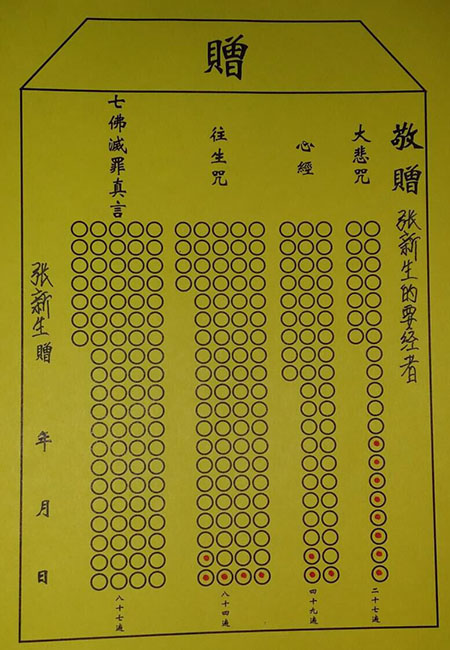 贈
敬贈 张新生的要经者
大悲咒
二十七遍
心經
四十九遍
往生咒
八十四遍
七佛滅罪真言
八十七遍
张新生贈 年 月 日